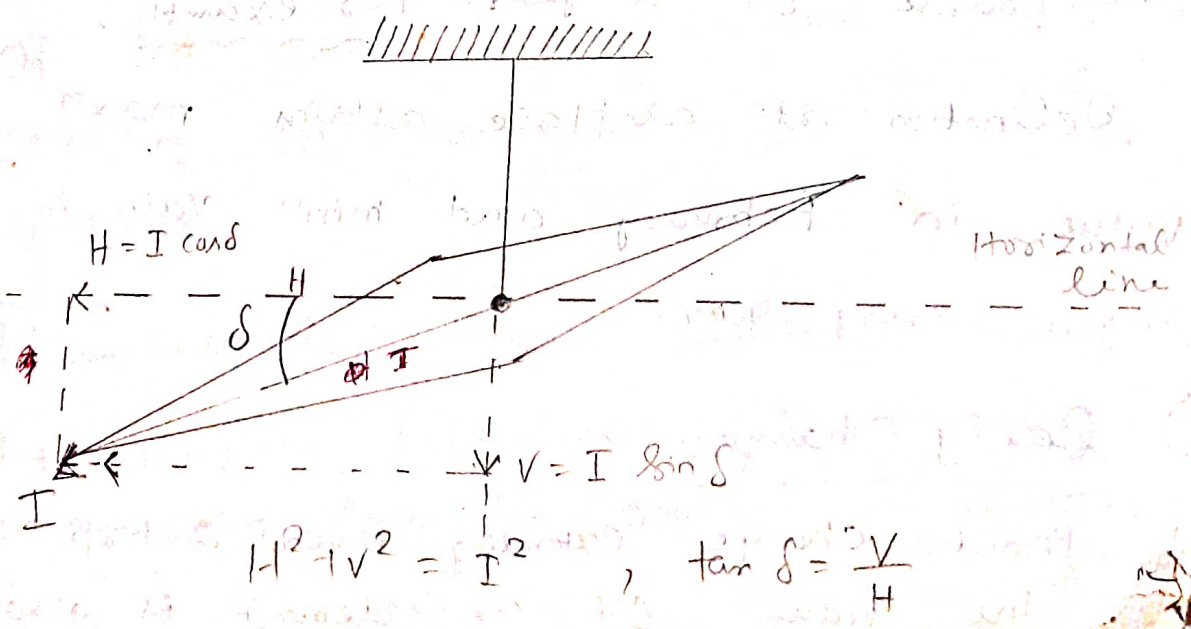 H = I cosδ
H
Horizontal
line
δ
I
I
V = I Sin δ
H² + V² = I² , tan δ = V/H